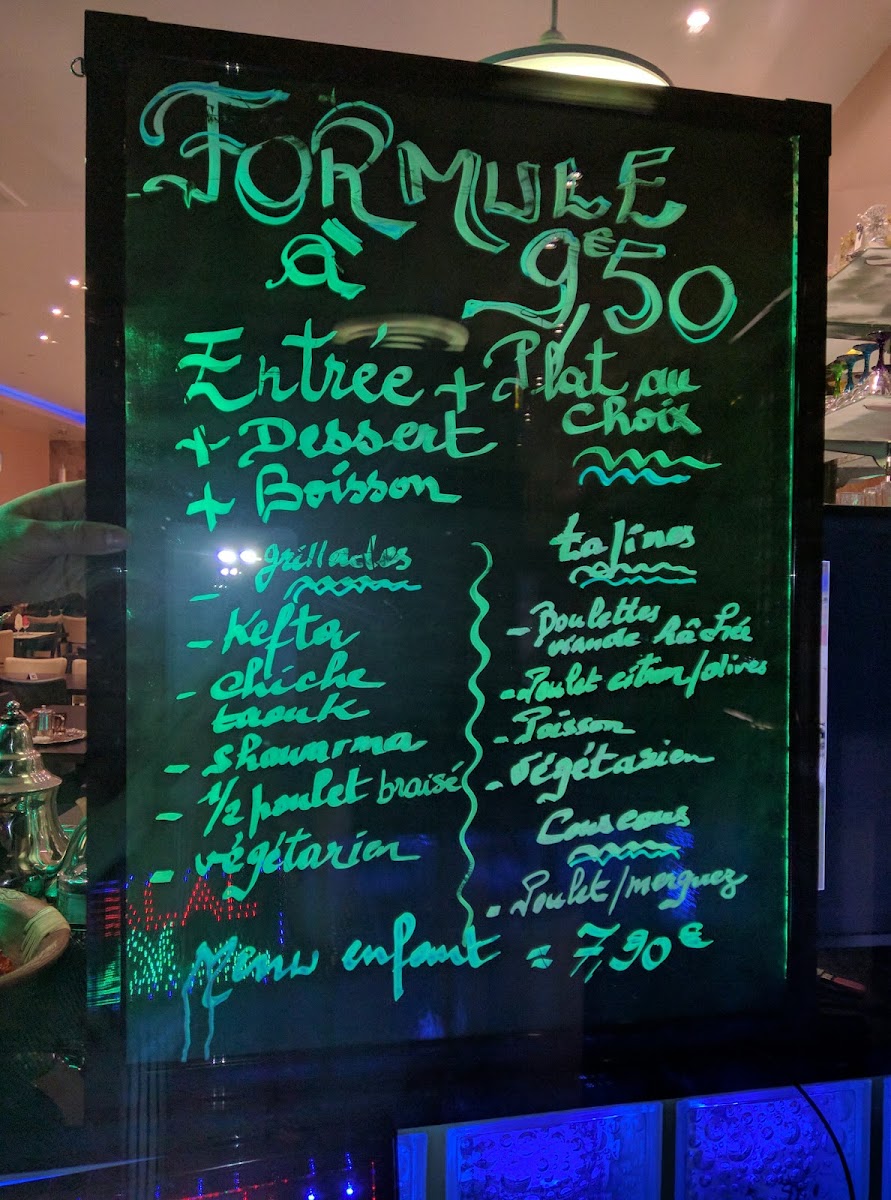 FORMULE
à 9€,50
Entrée + Plat au
choix
+ Dessert
+ Boisson
grillades
- Kefta
- chiche
taouk
- shawarma
- 1/2 poulet braisé
- végétarien
tajines
- Boulettes
viande hâchée
- Poulet citron/olives
- Poisson
- végétarien
Couscous
- Poulet/merguez
Menu enfant = 7,90€